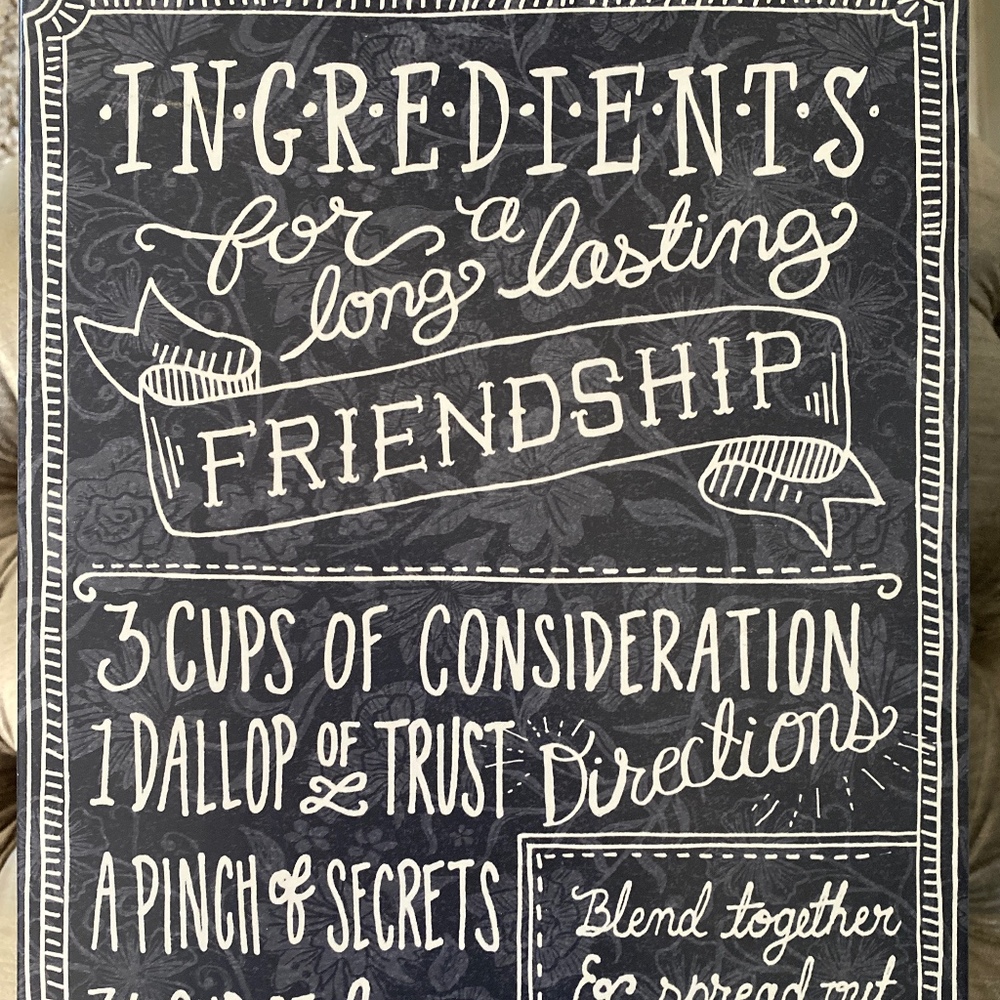 ·I·N·G·R·E·D·I·E·N·T·S·
for a
long lasting
FRIENDSHIP
3 CUPS OF CONSIDERATION
1 DALLOP OF TRUST
A PINCH of SECRETS
Directions
Blend together
& spread out